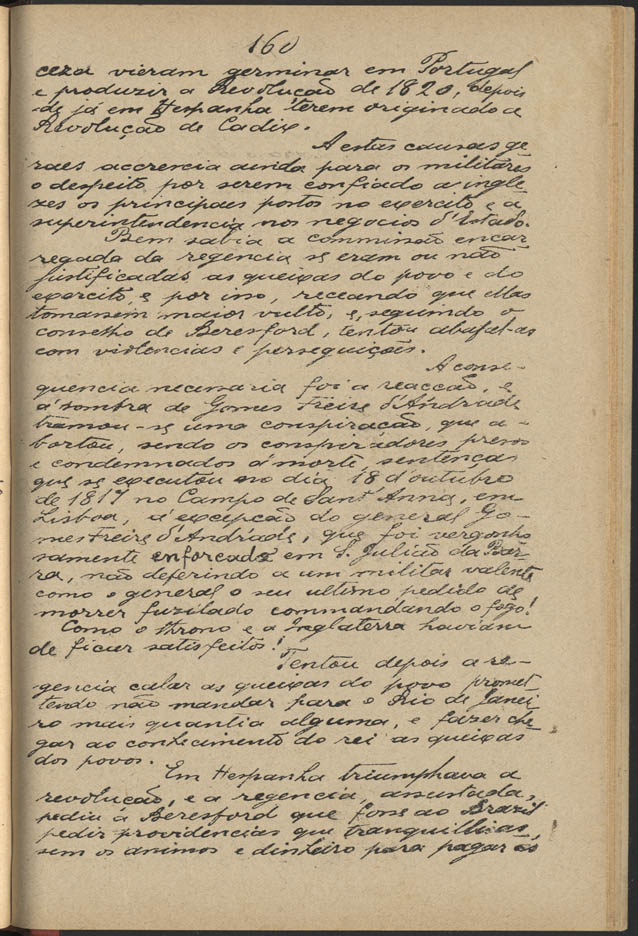 160
ceza vieram germinar em Portugal
e produzir a Revolução de 1820, depois
de já em Hespanha terem originado a
Revolução de Cadix.
A estas causas ge
raes accrencia ainda para os militares
o despeito por serem confiado a ingle
zes os principaes postos no exercito e a
superintendencia nos negocios d'Estado.
Bem sabia a commissão encar
regada da regencia se eram ou não
justificadas as queixas do povo e do
exercito, e por isso, receando que ellas
tomassem maior vulto, e, seguindo o
conselho de Beresford, tentou abafal-as
com violencias e perseguições.
A conse-
quencia necessaria foi a reacção, e
á sombra de Gomes Freire d'Andrade
tramou-se uma conspiração, que a-
bortou, sendo os conspiradores presos
e condemnados á morte, sentenças
que se executou no dia 18 d'outubro
de 1817 no Campo de Sant'Anna, em
Lisboa, á excepção do general Go-
mes Freire d'Andrade, que foi vergonho
samente enforcado em S. Julião da Bar-
ra, não deferindo a um militar valente
como o general o seu ultimo pedido de
morrer fuzilado commandando o fogo!
Como o throno e a Inglaterra haviam
de ficar satisfeitos!
Tentou depois a re-
gencia calar as queixas do povo promet-
tendo não mandar para o Rio de Janei
ro mais quantia alguma, e fazer che
gar ao conhecimento do rei as queixas
dos povos.
Em Hespanha triumphava a
revolução, e a regencia, assustada,
pediu á Beresford que fosse ao Brazil
pedir providencias que tranquillisas
sem os animos e dinheiro para pagar as